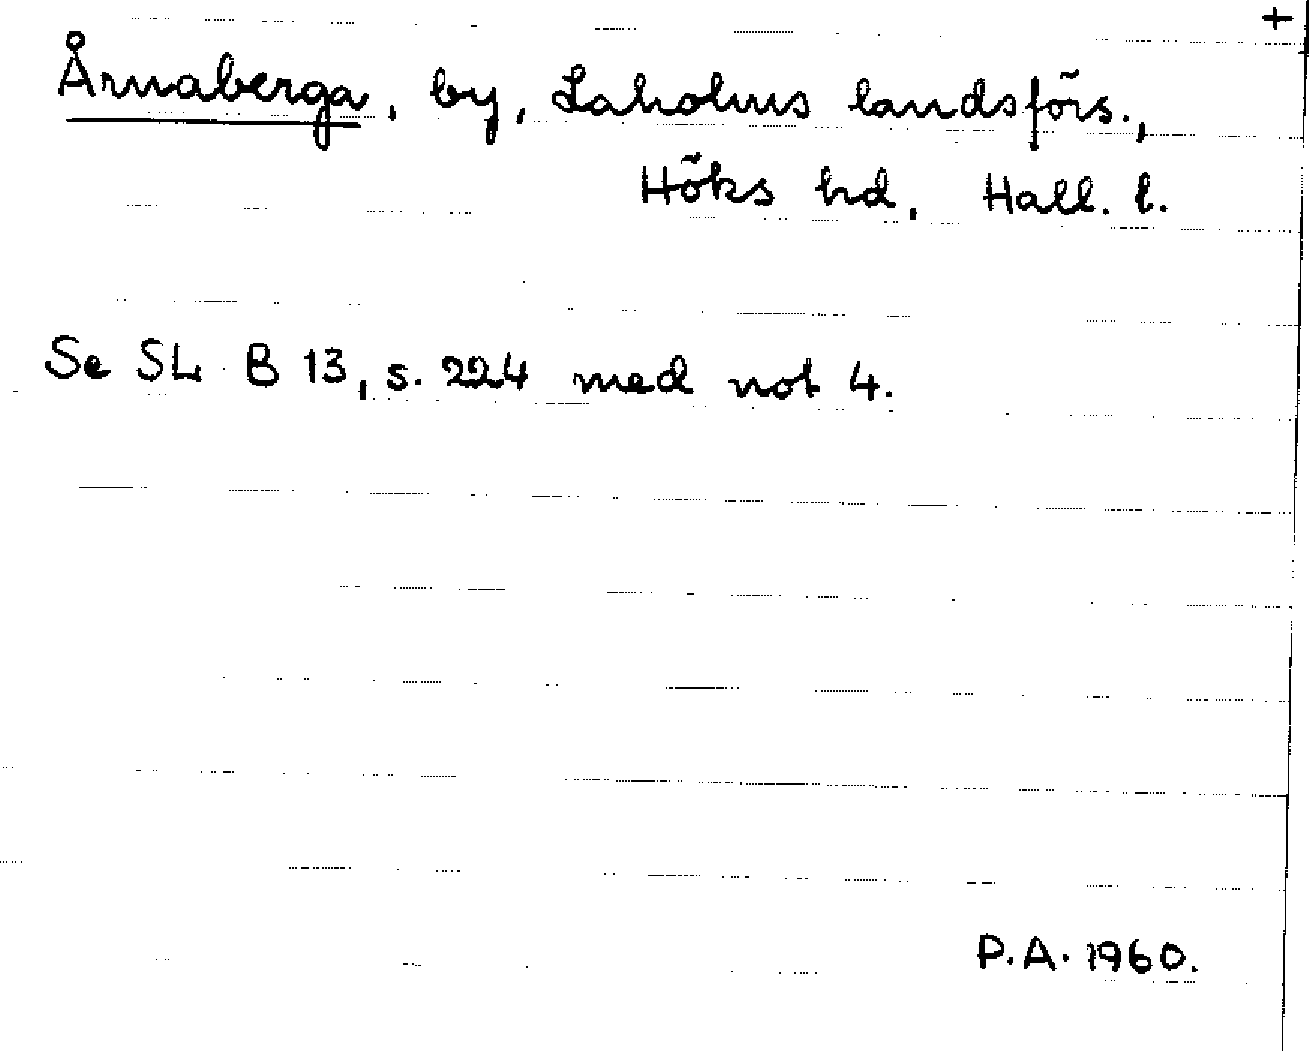 +
Årnaberga, by, Laholms landsförs.,
Höks hd, Hall. l.
Se SL B 13, s. 224 med not 4.
P.A. 1960.